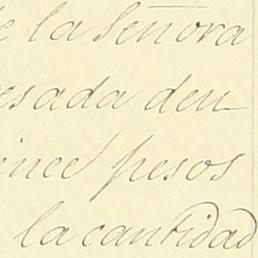 de la Señora
esada deu
ince pesos
la cantidad